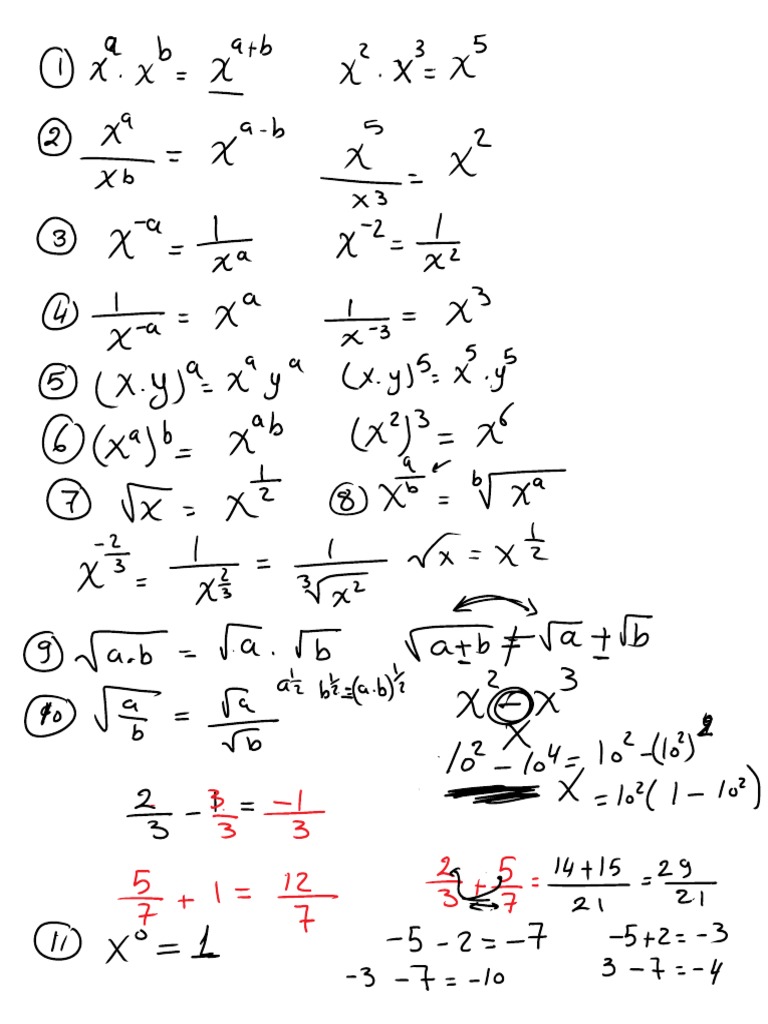 ① xᵃ · xᵇ = xᵃ⁺ᵇ    x² · x³ = x⁵
② xᵃ / xᵇ = xᵃ⁻ᵇ    x⁵ / x³ = x²
③ x⁻ᵃ = 1 / xᵃ    x⁻² = 1 / x²
④ 1 / x⁻ᵃ = xᵃ    1 / x⁻³ = x³
⑤ (x.y)ᵃ = xᵃ yᵃ    (x.y)⁵ = x⁵ · y⁵
⑥ (xᵃ)ᵇ = xᵃᵇ    (x²)³ = x⁶
⑦ √x = x^(1/2)    ⑧ x^(a/b) ↙ = ᵇ√(xᵃ)
x^(-2/3) = 1 / x^(2/3) = 1 / ³√(x²)    √x = x^(1/2)
⑨ √(a.b) = √a . √b    √(a±b) ≠ √a ± √b
a^(1/2) b^(1/2) = (a.b)^(1/2)    x² − x³
⑩ √(a/b) = √a / √b    x
10² − 10⁴ = 10² − (10²)²
x = 10² (1 − 10²)
2/3 − 3/3 = −1/3
5/7 + 1 = 12/7    2/3 + 5/7 = 14+15 / 21 = 29/21
⑪ x⁰ = 1    −5 − 2 = −7    −5+2 = −3
−3 − 7 = −10    3 − 7 = −4